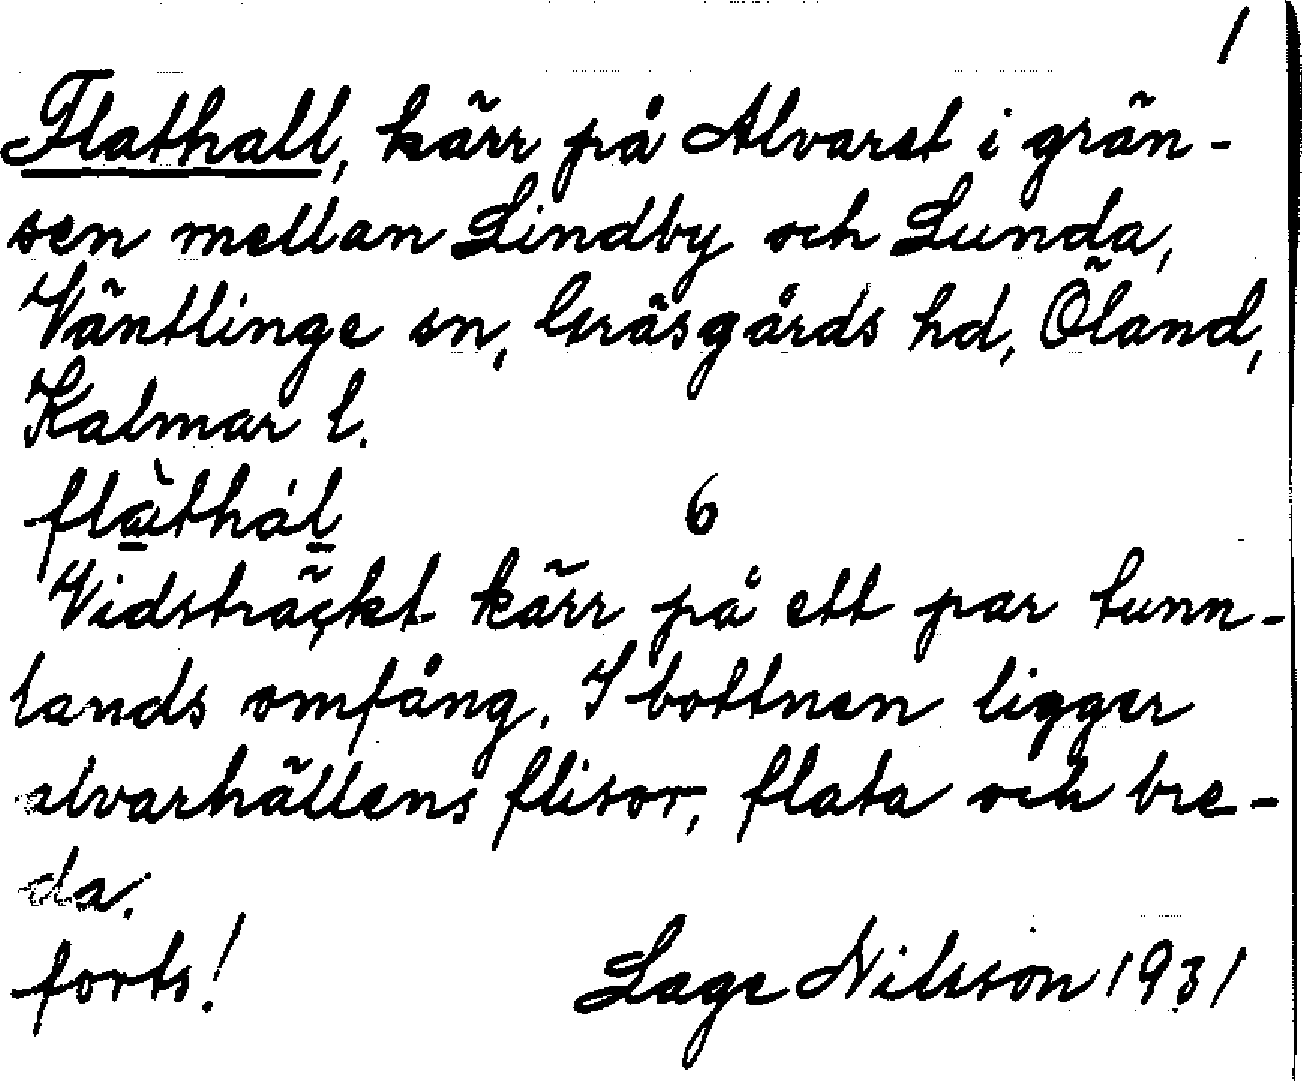 1
Flathall, kärr på Alvaret i grän-
sen mellan Lindby och Lunda,
Väntlinge sn, Gräsgårds hd, Öland,
Kalmar l.
flàthál 6
Vidsträckt kärr på ett par tunn-
lands omfång. I bottnen ligger
alvarhällens flisor, flata och bre-
da.
forts! Lage Nilsson 1931